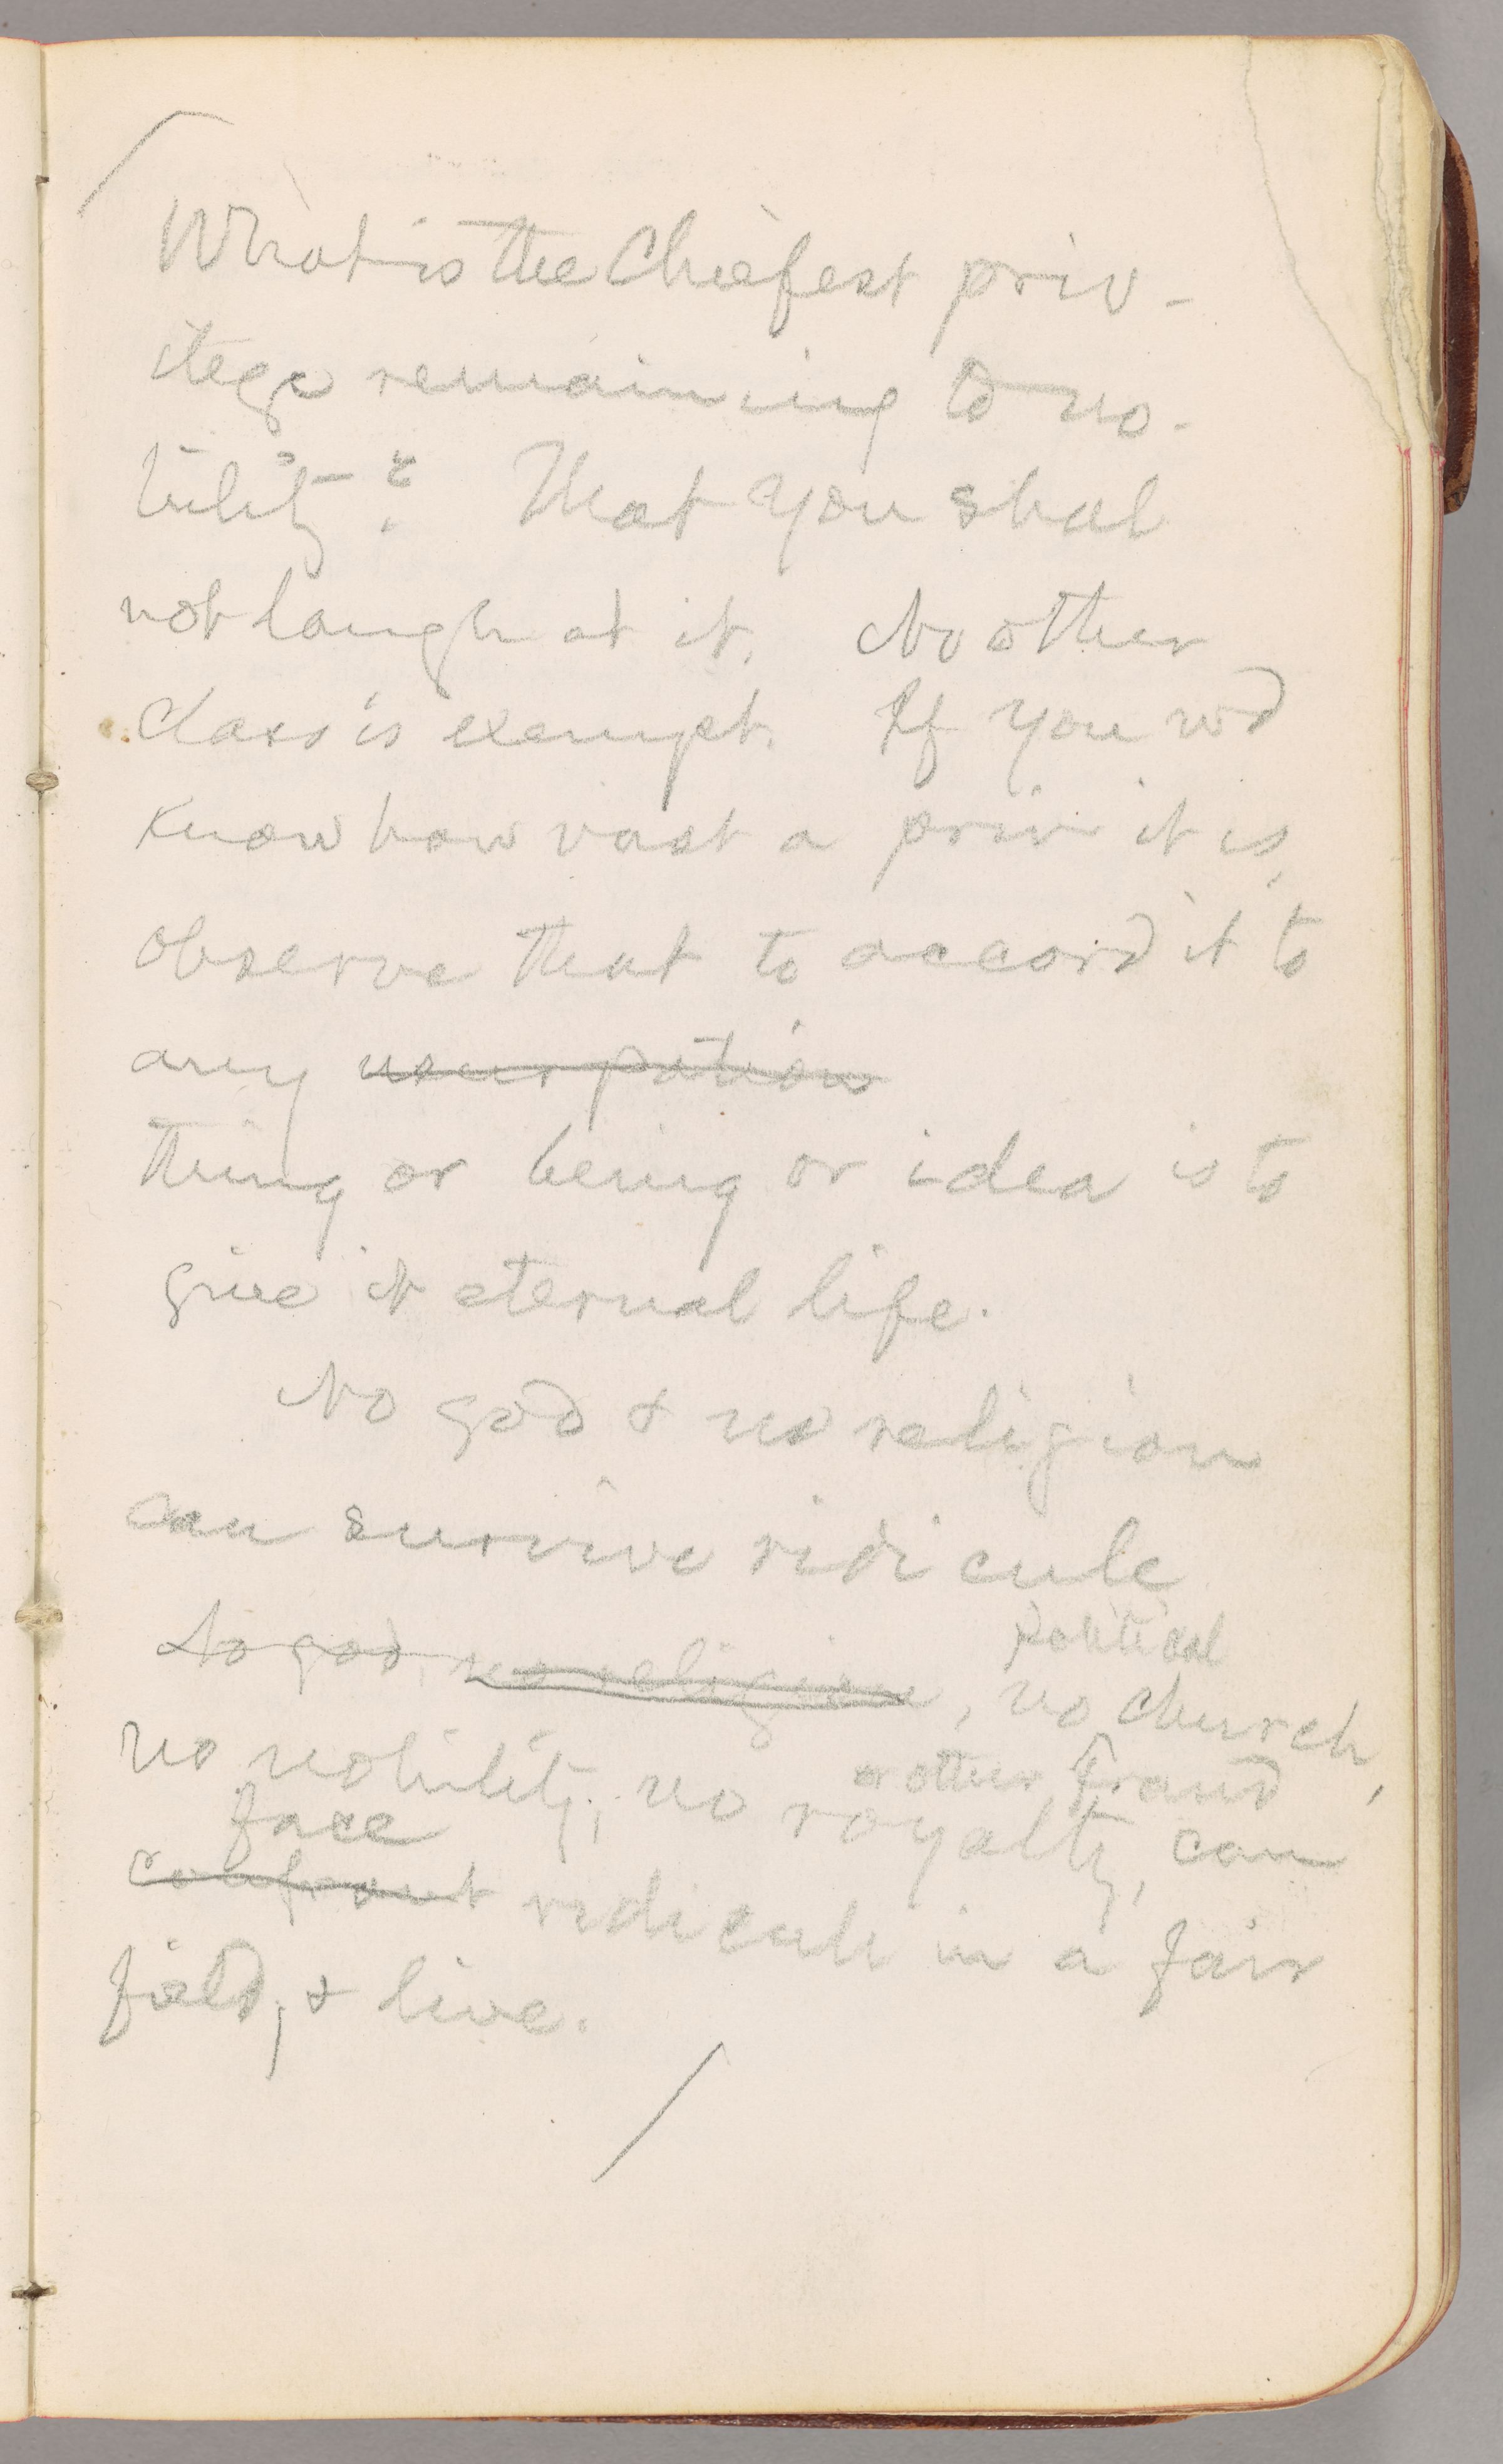 What is the Chiefest priv-
ilege remaining to no-
bility? That you shal
not laugh at it. No other
class is exempt. If you wd
know how vast a priv it is,
observe that to accord it to
any usurpation
thing or being or idea is to
give it eternal life.
No god & no religion
can survive ridicule
political
No god, no religion, no church,
or other fraud
no nobility, no royalty, can
face
confront ridicule in a fair
field, & live.